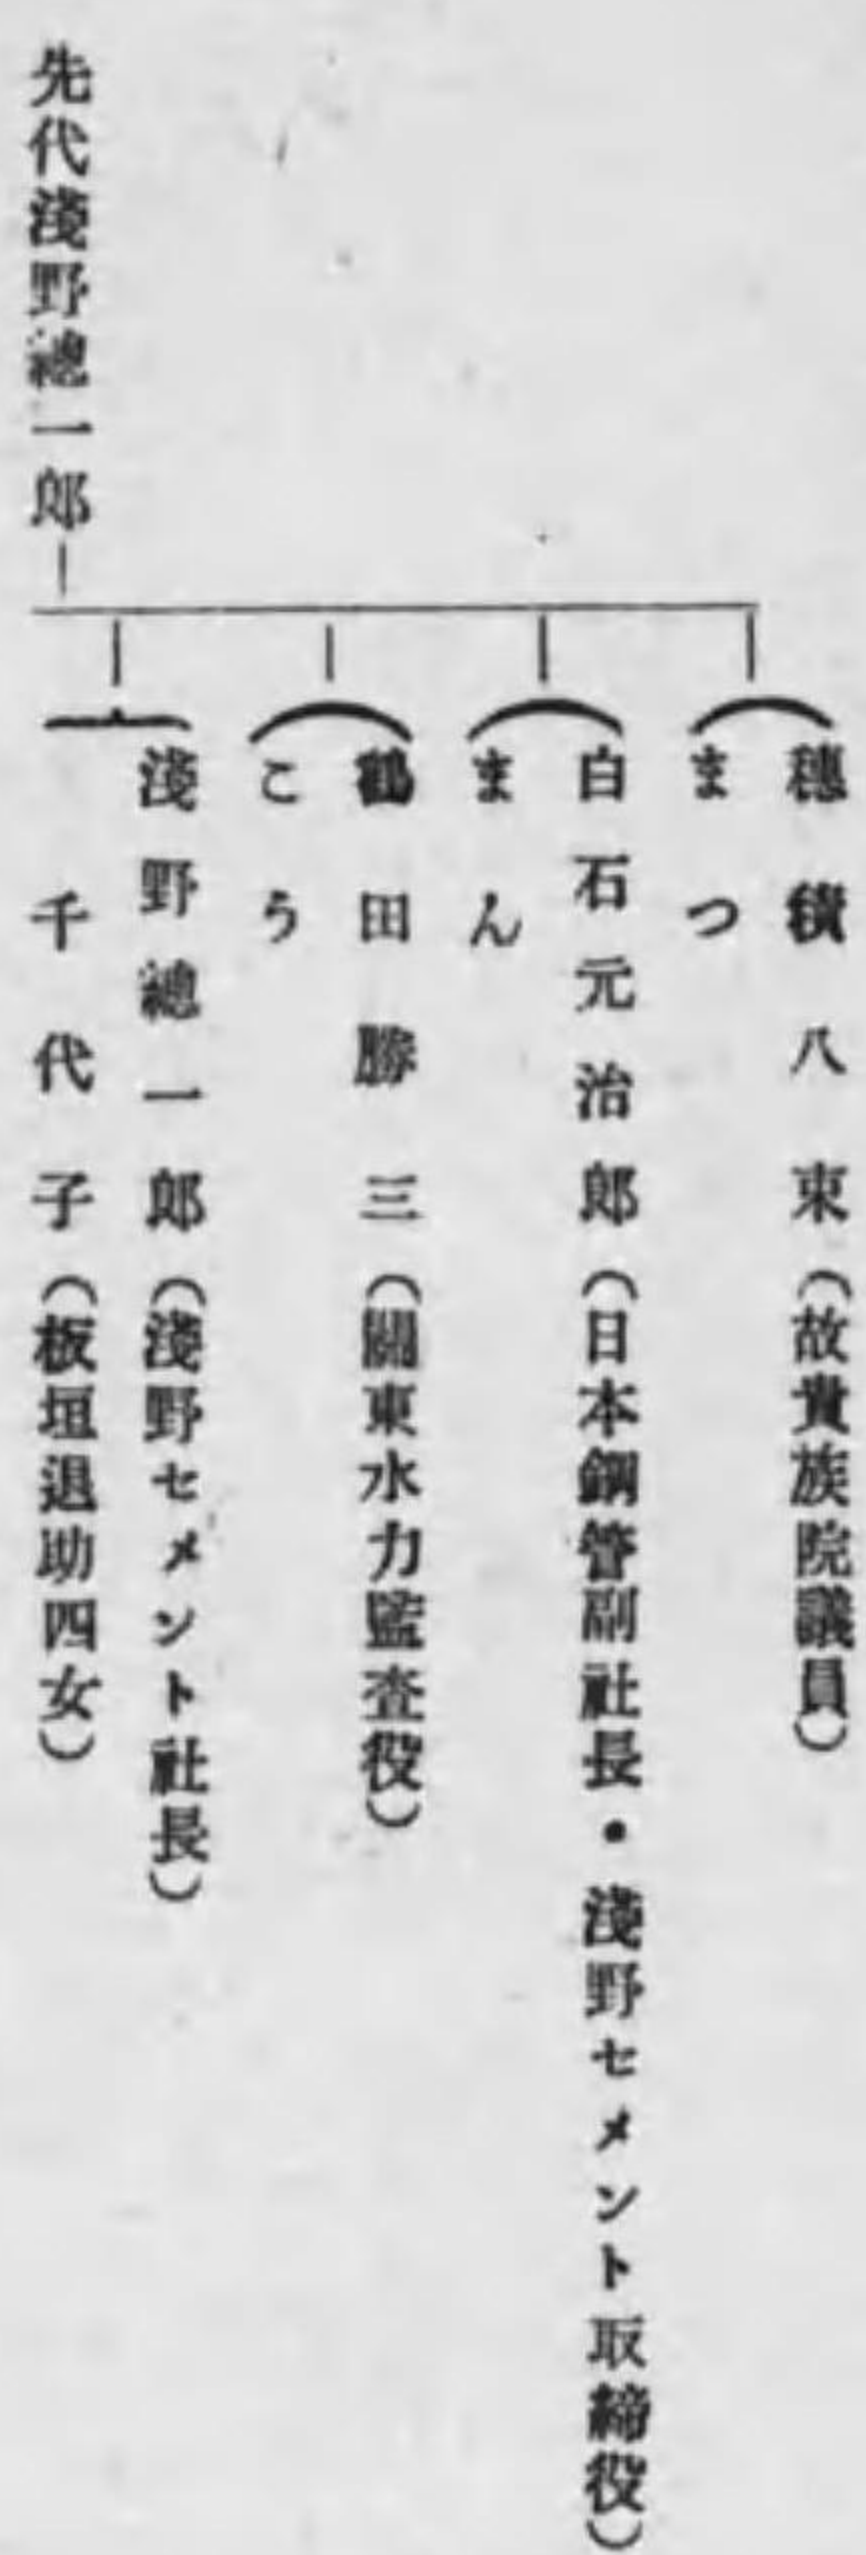 穗積八束(故貴族院議員)
まつ
白石元治郎(日本鋼管副社長・淺野セメント取締役)
まん
鶴田勝三(關東水力監査役)
こう
淺野總一郎(淺野セメント社長)
千代子(板垣退助四女)
先代淺野總一郎